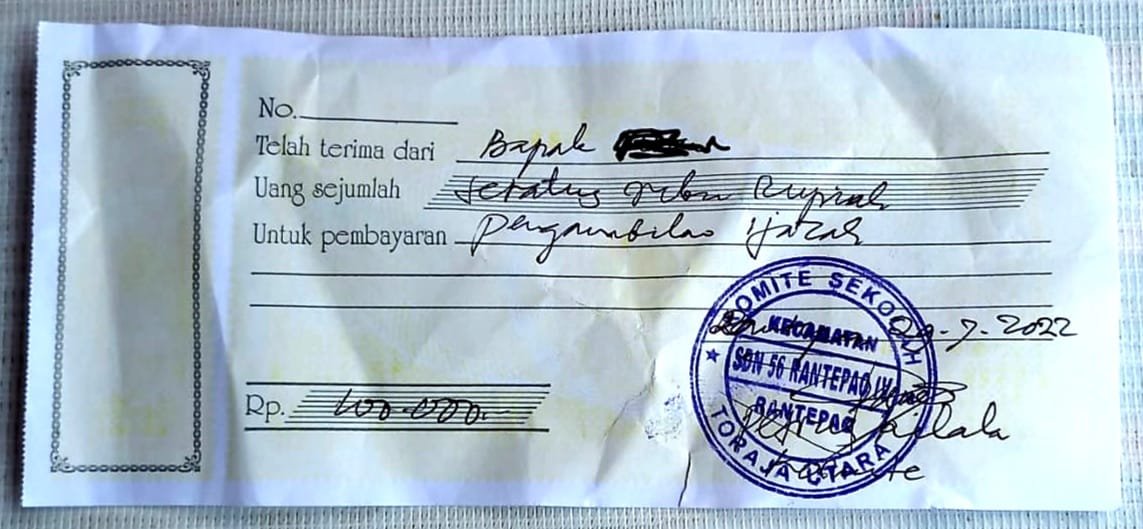 No.
Telah terima dari Bapak
Uang sejumlah Seratus ribu Rupiah
Untuk pembayaran Pengambilan Ijazah
29-7-2022
KOMITE SEKOLAH
KECAMATAN
SDN 56 RANTEPAO IV
RANTEPAO
TORAJA UTARA
Rp. 100.000.-